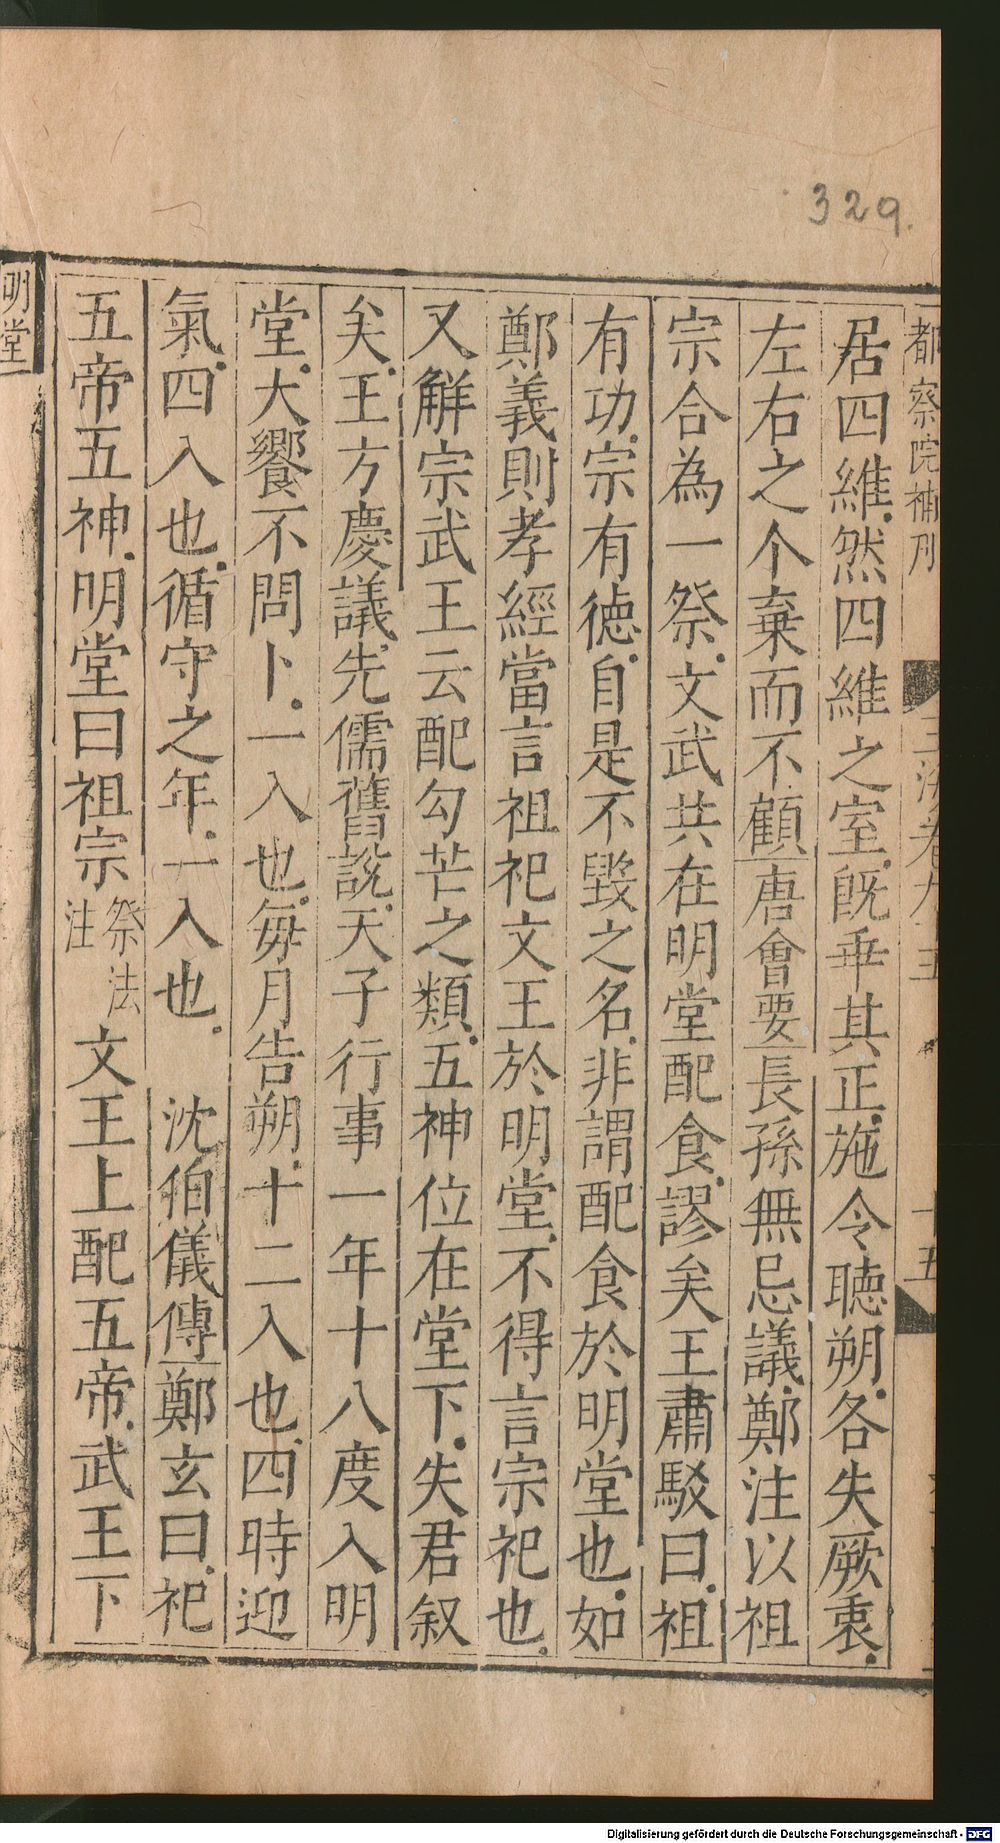 329.
都察院補刋
玉海卷九十五
十五
居四維然四維之室旣乖其正施令聽朔各失厥衷
左右之个棄而不顧唐會要長孫無忌議鄭注以祖
宗合為一祭文武共在明堂配食謬矣王肅駁曰祖
有功宗有德自是不毀之名非謂配食於明堂也如
鄭義則孝經當言祖祀文王於明堂不得言宗祀也
又解宗武王云配勾芒之類五神位在堂下失君叙
矣王方慶議先儒舊說天子行事一年十八度入明
堂大饗不問卜一入也每月告朔十二入也四時迎
氣四入也循守之年一入也 沈伯儀傳鄭玄曰祀
五帝五神明堂曰祖宗祭法注文王上配五帝武王下
明堂
Digitalisierung gefördert durch die Deutsche Forschungsgemeinschaft - DFG